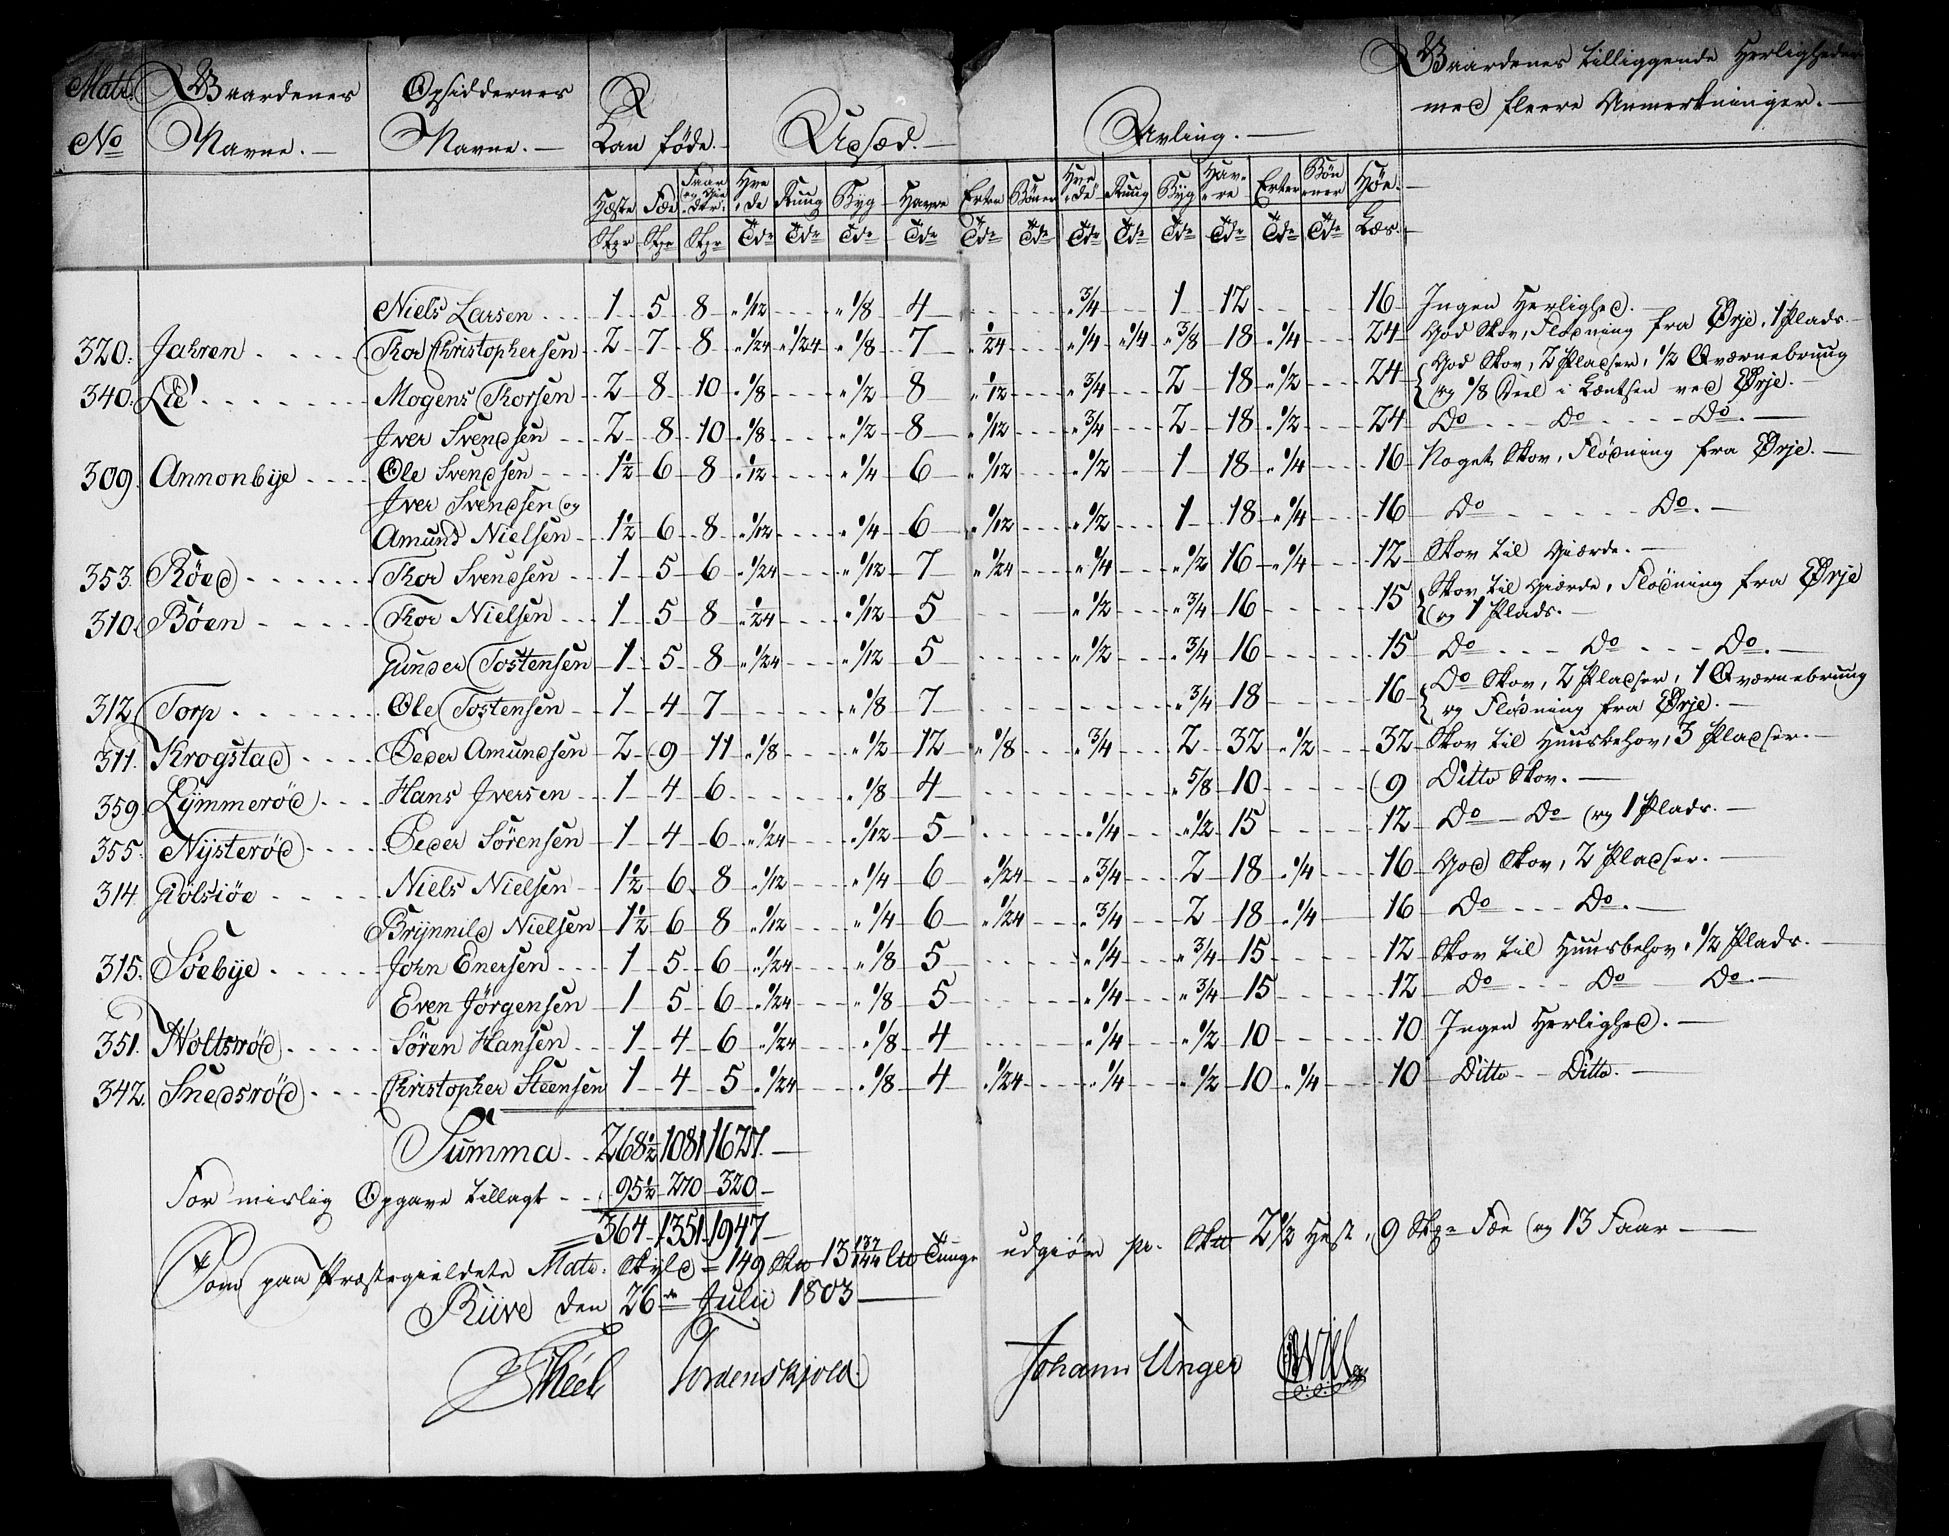 Matr. Gaardenes Opsiddernes Kan føde. Udsæd. Avling. Gaardenes tilliggende Herligheder
No Navne. Navne. med fleere Anmerkninger.
Hæste Fæe Faar og Gieder Hvede Rung Byg Havre Erter Bøner Hvede Rung Byg Havre Erter Bønner Høe
Stkr Stkr Stkr Tdr Tdr Tdr Tdr Tdr Tdr Tdr Tdr Tdr Tdr Tdr Tdr Læs
Niels Larsen 1 5 8 " 1/12 " 1/8 4 " 3/4 1 12 16 Ingen Herlighed.
320. Jahren Thor Christophersen 2 7 8 " 1/24 " 1/24 " 1/8 7 " 1/24 " 1/4 " 1/4 " 3/8 18 " 1/4 24 God Skov, Flødning fra Ørje, 1 Plads.
340. Lie Mogens Thorsen 2 8 10 " 1/8 " 1/2 8 " 1/12 " 3/4 2 18 " 1/2 24 God Skov, 2 Pladser, 1/2 Qværnebruug
og 1/8 Deel i Læntsen ved Ørje.
Iver Svendsen 2 8 10 " 1/8 " 1/2 8 " 1/12 " 3/4 2 18 " 1/2 24 Do Do Do.
309. Annonbye Ole Svendsen 1 1/2 6 8 " 1/12 " 1/4 6 " 1/12 " 1/2 1 18 " 1/4 16 Noget Skov, Flødning fra Ørje.
Iver Svendsen og
Amund Nielsen 1 1/2 6 8 " 1/12 " 1/4 6 " 1/12 " 1/2 1 18 " 1/4 16 Do Do.
353. Röed Thor Svendsen 1 5 6 " 1/24 " 1/12 7 " 1/24 " 1/4 " 1/2 16 " 1/4 12 Skov til Giærde.
310. Böen Thor Nielsen 1 5 8 " 1/24 " 1/12 5 " 1/2 " 3/4 16 15 Skov til Giærde, Flødning fra Ørje
og 1 Plads.
Gunder Tostensen 1 5 8 " 1/24 " 1/12 5 " 1/2 " 3/4 16 15 Do Do Do.
312. Torp Ole Tostensen 1 4 7 " 1/8 7 " 3/4 18 16 Do Skov, 2 Pladser, 1 Qværnebruug
og Flødning fra Ørje.
311. Krogstad Peder Amundsen 2 9 11 " 1/8 " 1/2 12 " 1/8 " 3/4 2 32 " 1/2 32 Skov til Huusbehov, 3 Pladser.
359. Lymmeröd Hans Iversen 1 4 6 " 1/8 4 " 5/8 10 9 Ditto Skov.
355. Nysteröd Peder Sörensen 1 4 6 " 1/24 " 1/12 5 " 1/4 " 1/2 15 12 Do Do og 1 Plads.
314. Gölsiöe Niels Nielsen 1 1/2 6 8 " 1/12 " 1/4 6 " 1/24 " 3/4 2 18 " 1/4 16 God Skov, 2 Pladser.
Brynnild Nielsen 1 1/2 6 8 " 1/12 " 1/4 6 " 1/24 " 3/4 2 18 " 1/4 16 Do Do.
315. Söebye John Enersen 1 5 6 " 1/24 " 1/8 5 " 1/4 " 3/4 15 12 Skov til Huusbehov, 1/2 Plads.
Even Jörgensen 1 5 6 " 1/24 " 1/8 5 " 1/4 " 3/4 15 12 Do Do Do.
351. Holtsröd Sören Hansen 1 4 6 " 1/24 " 1/8 4 " 1/4 " 1/2 10 10 Ingen Herlighed.
342. Snedsröd Christopher Steensen 1 4 5 " 1/24 " 1/8 4 " 1/24 " 1/4 " 1/2 10 " 1/4 10 Ditto Ditto.
Summa 268 1/2 1081 1627.
For mislig Opgave tillagt 95 1/2 270 320
364 1351 1947
Som paa Præstegieldets Matr. Skyld = 149 Skt 13 137/144 Lb Tunge udgiör pr. Skt 2 1/2 Hest, 9 Stkr Fæe og 13 Faar
Riive den 26de Julii 1803
Theel Tordenskjold. Johann Unger Will